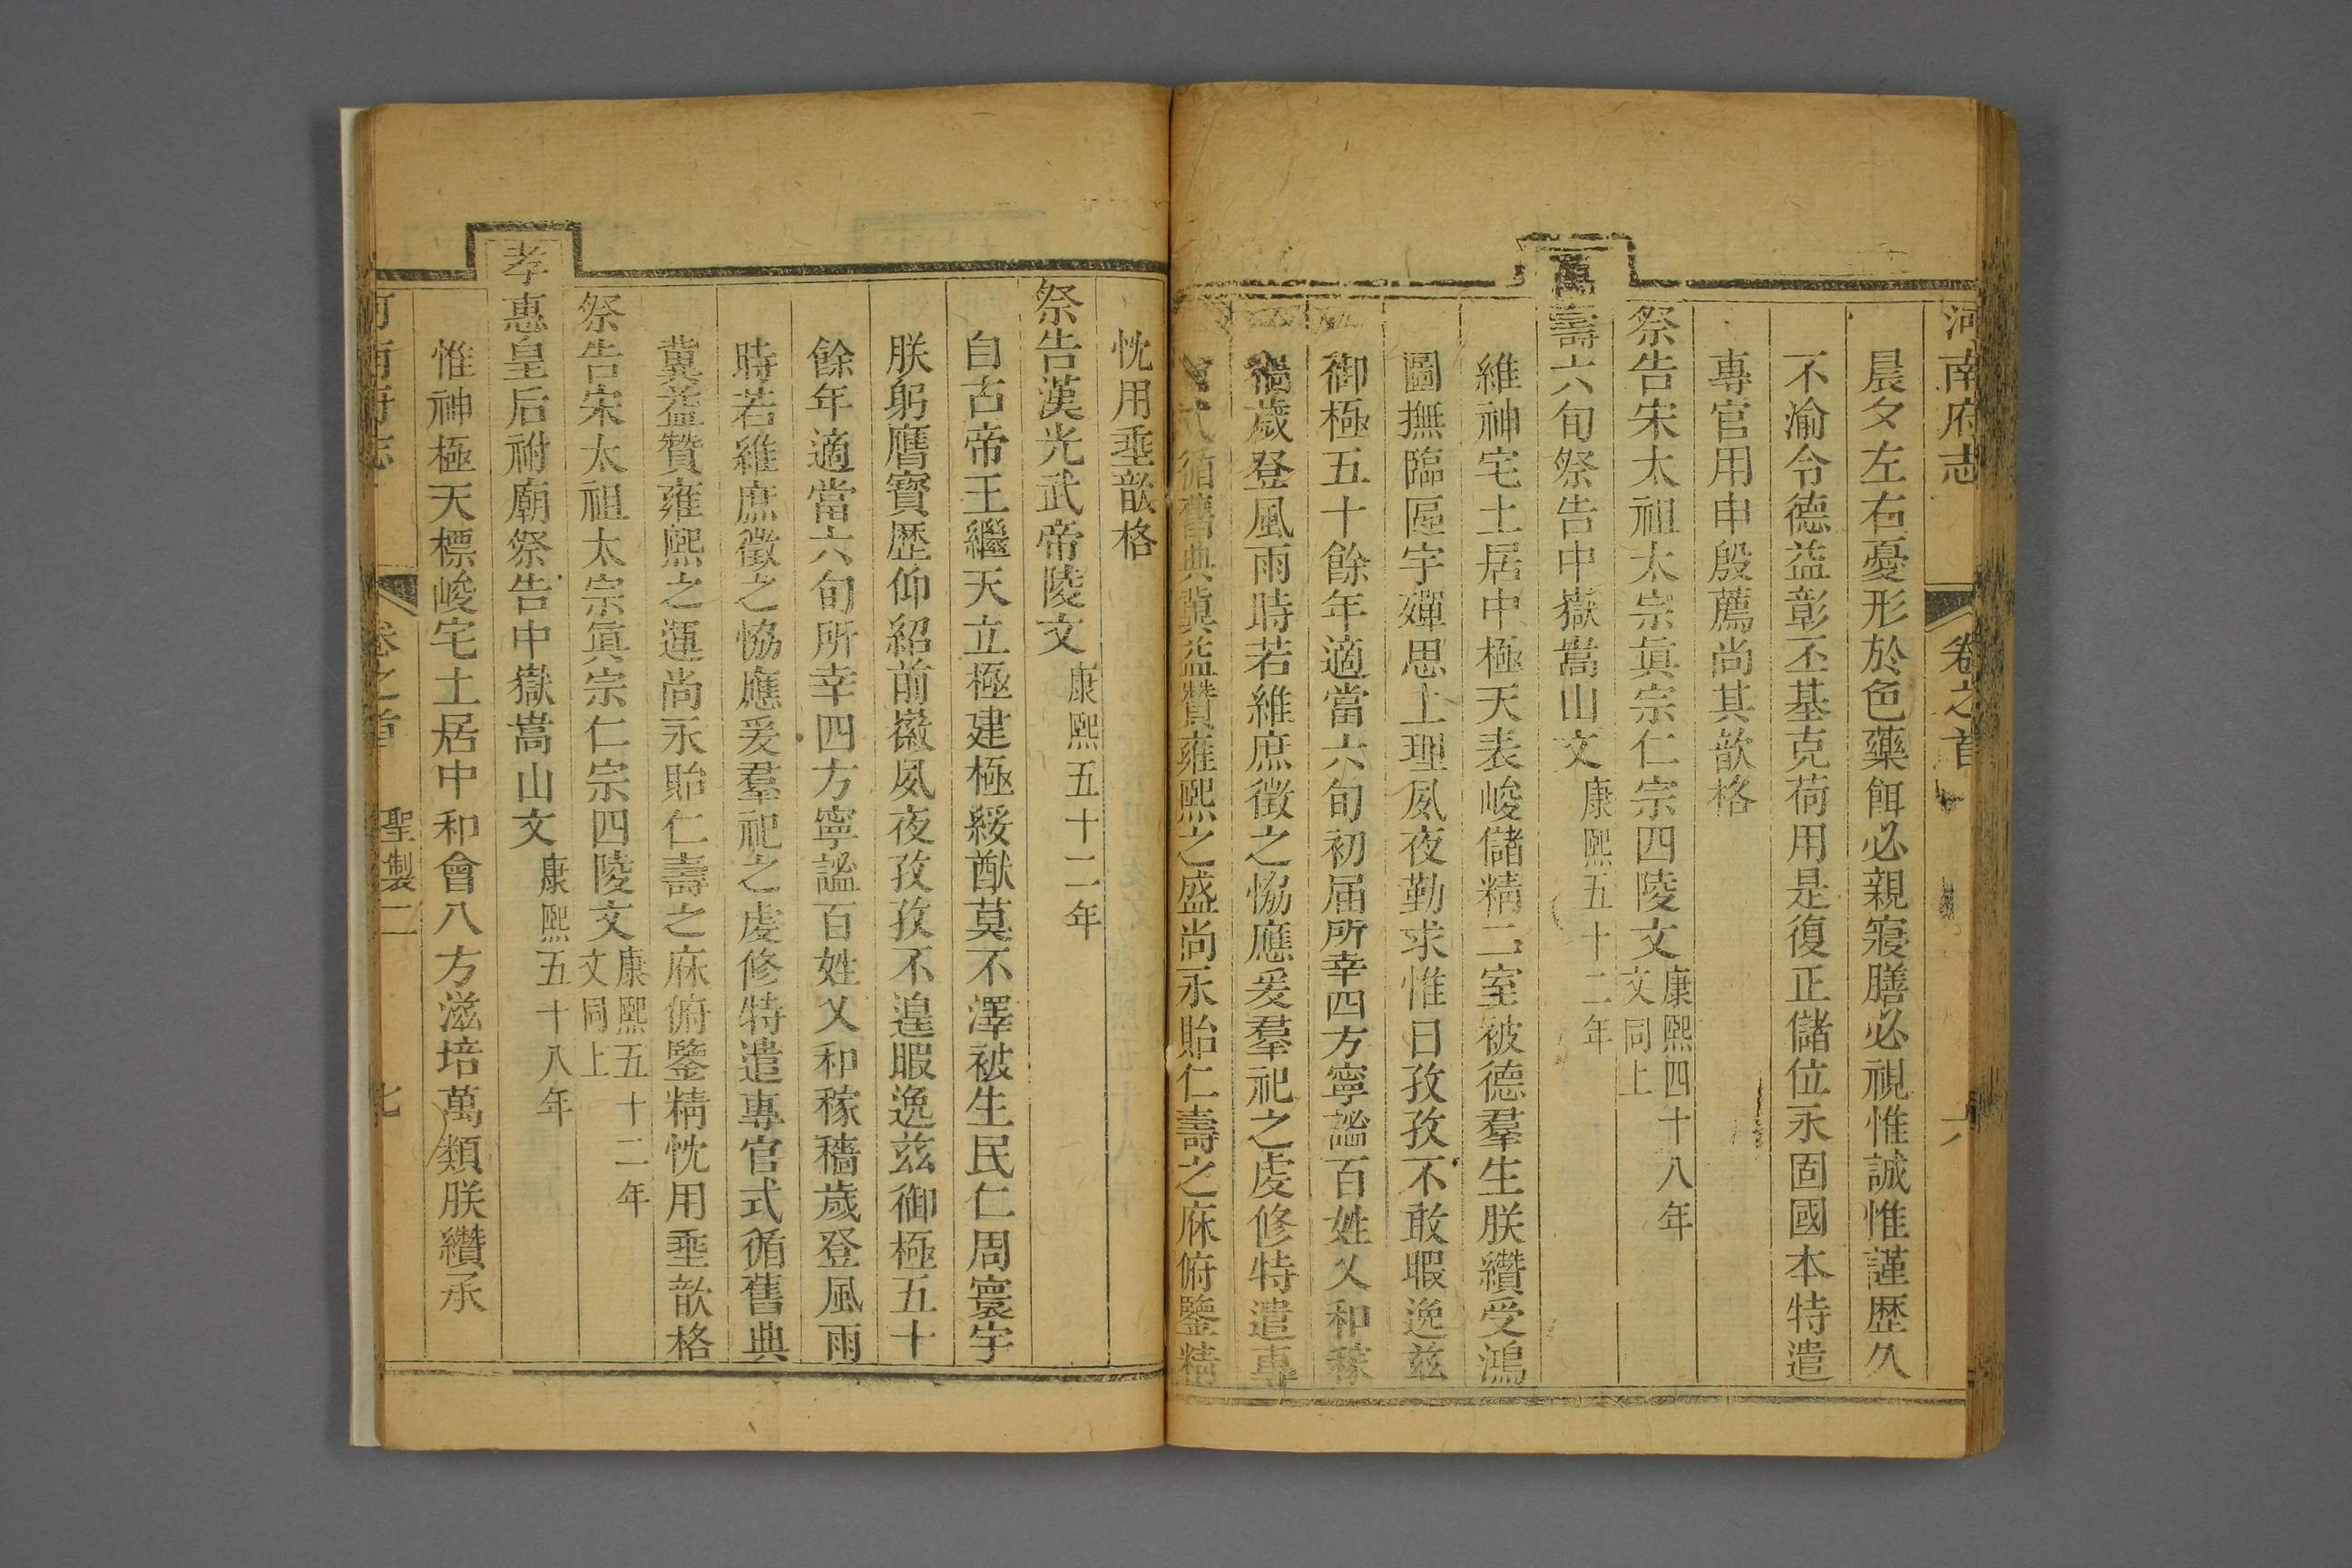 河南府志 卷之首 六
晨夕左右憂形於色藥餌必親寢膳必視惟誠惟謹歷久
不渝令德益彰丕基克荷用是復正儲位永固國本特遣
專官用申殷薦尚其歆格
祭告宋太祖太宗眞宗仁宗四陵文康熙四十八年文同上
萬壽六旬祭告中嶽嵩山文康熙五十二年
維神宅土居中極天表峻儲精二室被德羣生朕纘受鴻
圖撫臨區宇殫思上理夙夜勤求惟日孜孜不敢暇逸茲
御極五十餘年適當六旬初届所幸四方寧謐百姓乂和稼
穡歲登風雨時若維庶徵之恊應爰羣祀之虔修特遣專
式循舊典冀益贊雍熙之盛尚永貽仁壽之庥俯鑒精
忱用垂歆格
祭告漢光武帝陵文康熙五十二年
自古帝王繼天立極建極綏猷莫不澤被生民仁周寰宇
朕躬膺寳歷仰紹前徽夙夜孜孜不遑暇逸茲御極五十
餘年適當六旬所幸四方寧謐百姓乂和稼穡歲登風雨
時若維庶徵之恊應爰羣祀之虔修特遣專官式循舊典
冀益贊雍熙之運尚永貽仁壽之庥俯鑒精忱用垂歆格
祭告宋太祖太宗眞宗仁宗四陵文康熙五十二年文同上
孝惠皇后祔廟祭告中嶽嵩山文康熙五十八年
惟神極天標峻宅土居中和會八方滋培萬類朕纘承
河南府志 卷之首 聖製二 七